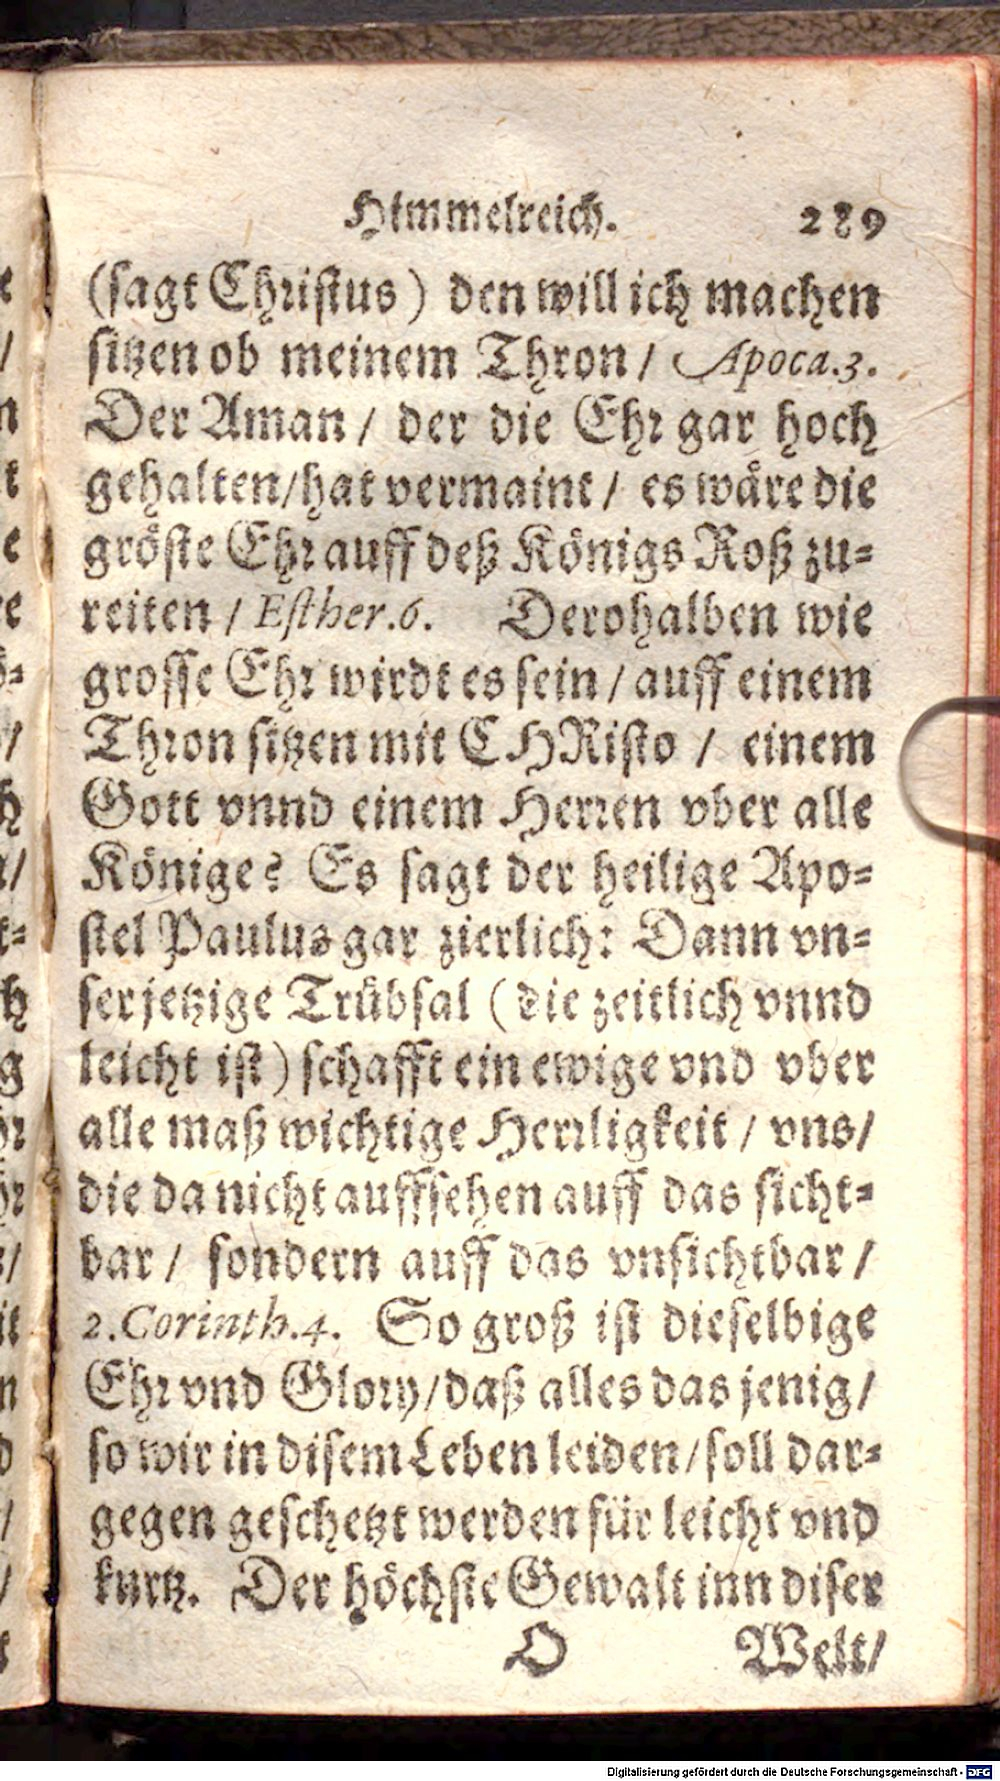 Himmelreich. 289
(sagt Christus) den will ich machen
sitzen ob meinem Thron / Apoca.3.
Der Aman / der die Ehr gar hoch
gehalten/hat vermaint / es wäre die
gröste Ehr auff deß Königs Roß zu=
reiten / Esther.6. Derohalben wie
grosse Ehr wirdt es sein / auff einem
Thron sitzen mit CHRisto / einem
Gott vnnd einem Herren vber alle
Könige? Es sagt der heilige Apo=
stel Paulus gar zierlich: Dann vn=
ser jetzige Trübsal (die zeitlich vnnd
leicht ist) schafft ein ewige vnd vber
alle maß wichtige Herrligkeit / vns/
die da nicht auffsehen auff das sicht=
bar / sondern auff das vnsichtbar /
2.Corinth.4. So groß ist dieselbige
Ehr vnd Glory/daß alles das jenig/
so wir in disem Leben leiden/soll dar=
gegen geschetzt werden für leicht vnd
kurtz. Der höchste Gewalt inn diser
O Welt/
Digitalisierung gefördert durch die Deutsche Forschungsgemeinschaft - DFG